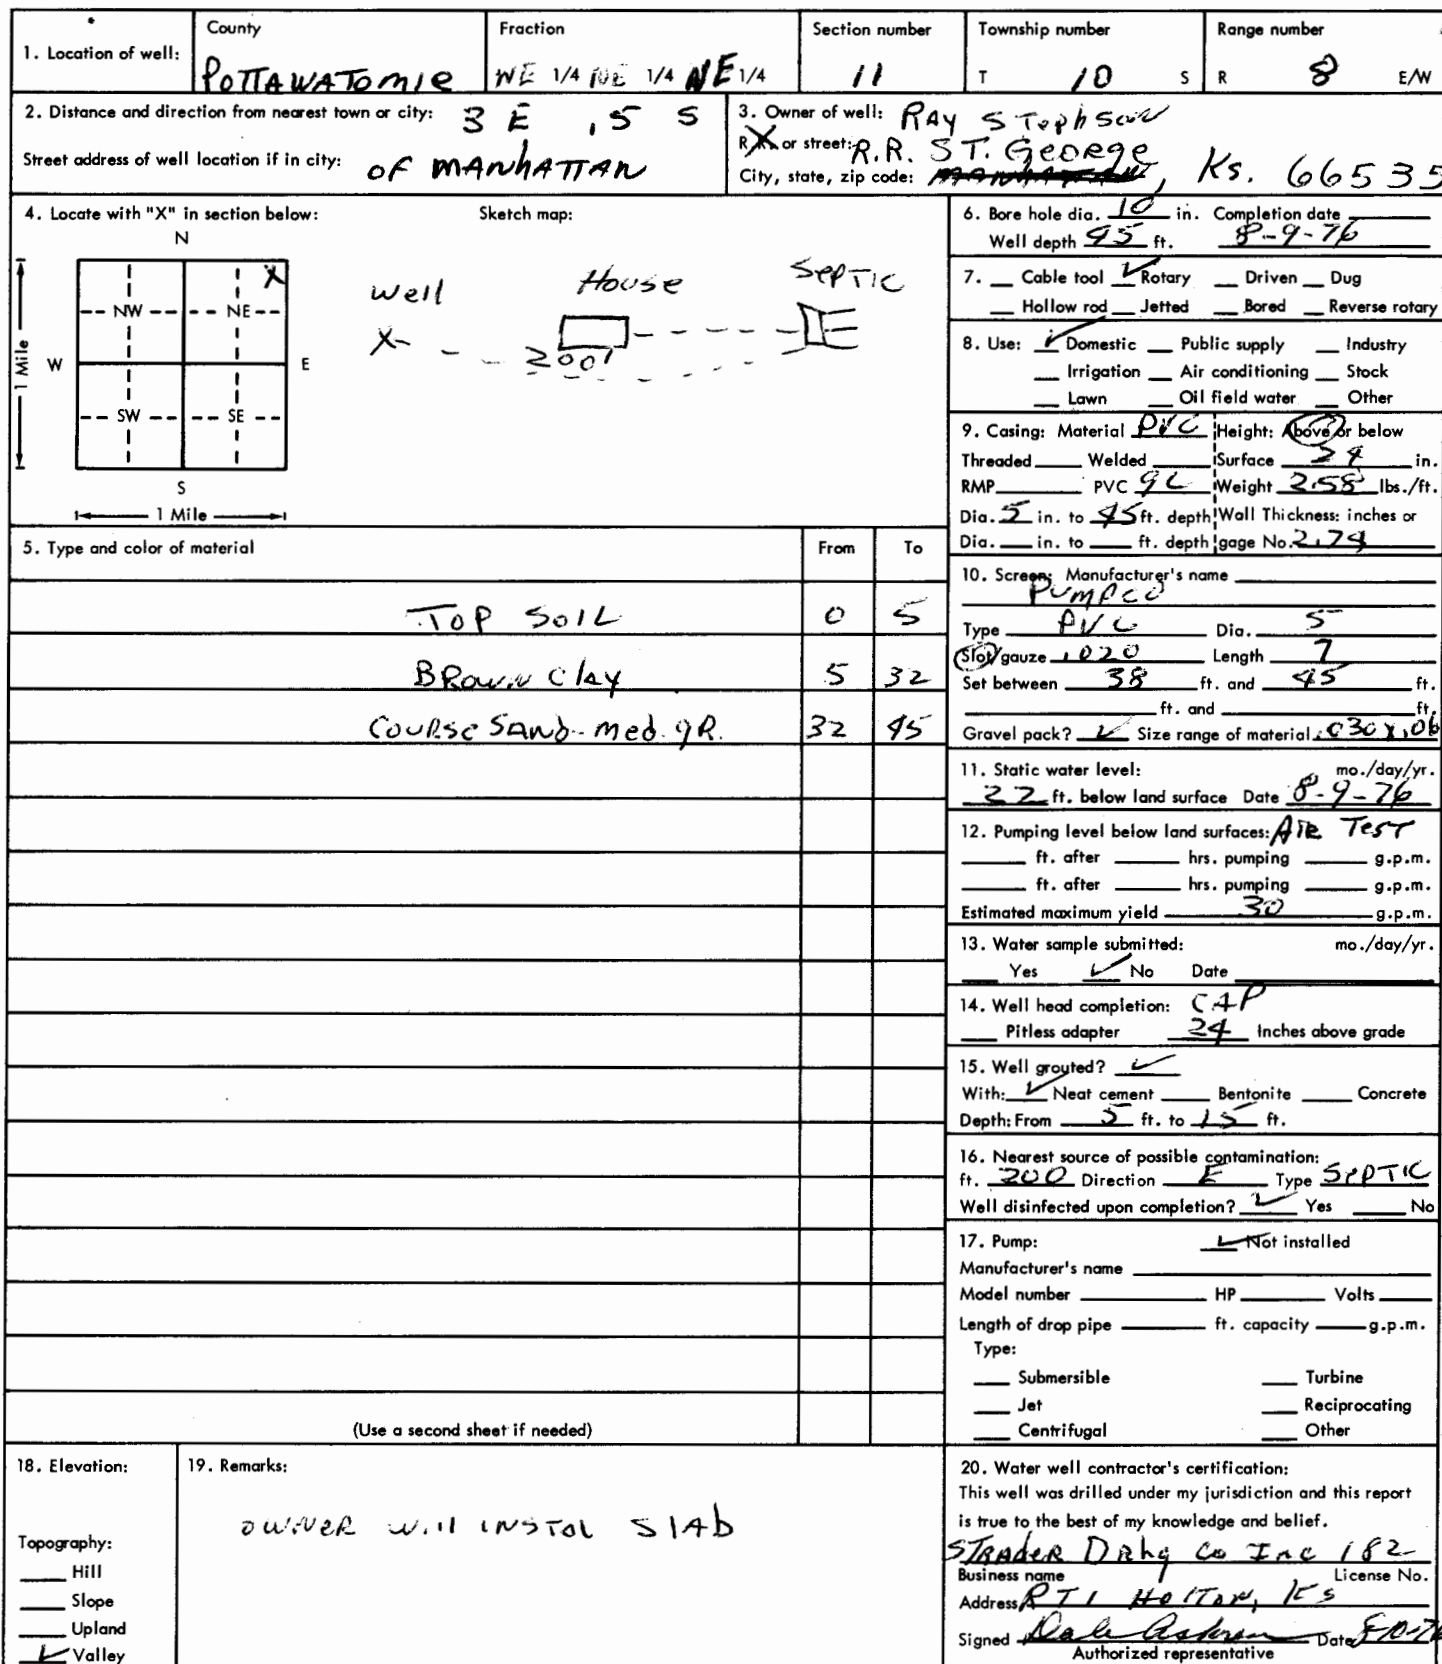 1. Location of well:
County
POTTAWATOMIE
Fraction
NE 1/4 NE 1/4 NE 1/4
Section number
11
Township number
T 10 S
Range number
R 8 E/W
2. Distance and direction from nearest town or city: 3 E , 5 S
Street address of well location if in city: OF MANHATTAN
3. Owner of well: RAY
R or street: R.R. ST. George
City, state, zip code: , Ks. 66535
4. Locate with "X" in section below:
Sketch map:
N
NW NE
W E
SW SE
S
1 Mile
1 Mile
X
Well House SEPTIC
X
200'
5. Type and color of material From To
TOP SOIL 0 5
BROWN ClAY 5 32
COURSE SAND - Med. gR. 32 45
(Use a second sheet if needed)
6. Bore hole dia. 10 in. Completion date
Well depth 45 ft. 8-9-76
7. Cable tool ✓ Rotary Driven Dug
Hollow rod Jetted Bored Reverse rotary
8. Use: ✓ Domestic Public supply Industry
Irrigation Air conditioning Stock
Lawn Oil field water Other
9. Casing: Material PVC Height: Above or below
Threaded Welded Surface 24 in.
RMP PVC GL Weight 2.58 lbs./ft.
Dia. 5 in. to 45 ft. depth Wall Thickness: inches or
Dia. in. to ft. depth gage No. 2.74
10. Screen: Manufacturer's name
PUMPCO
Type PVC Dia. 5
Slot/gauze .020 Length 7
Set between 38 ft. and 45 ft.
ft. and ft.
Gravel pack? ✓ Size range of material .030 x .06
11. Static water level: mo./day/yr.
22 ft. below land surface Date 8-9-76
12. Pumping level below land surfaces: AIR TEST
ft. after hrs. pumping g.p.m.
ft. after hrs. pumping g.p.m.
Estimated maximum yield 30 g.p.m.
13. Water sample submitted: mo./day/yr.
Yes ✓ No Date
14. Well head completion: CAP
Pitless adapter 24 Inches above grade
15. Well grouted? ✓
With: ✓ Neat cement Bentonite Concrete
Depth: From 5 ft. to 15 ft.
16. Nearest source of possible contamination:
ft. 200 Direction E Type SEPTIC
Well disinfected upon completion? ✓ Yes No
17. Pump: ✓ Not installed
Manufacturer's name
Model number HP Volts
Length of drop pipe ft. capacity g.p.m.
Type:
Submersible Turbine
Jet Reciprocating
Centrifugal Other
18. Elevation:
Topography:
Hill
Slope
Upland
✓ Valley
19. Remarks:
OWNER Will INSTOL SlAb
20. Water well contractor's certification:
This well was drilled under my jurisdiction and this report
is true to the best of my knowledge and belief.
STRADER Drlg Co Inc 182
Business name License No.
Address RT 1 HOLTON, KS
Signed Dale Date 8-10-76
Authorized representative